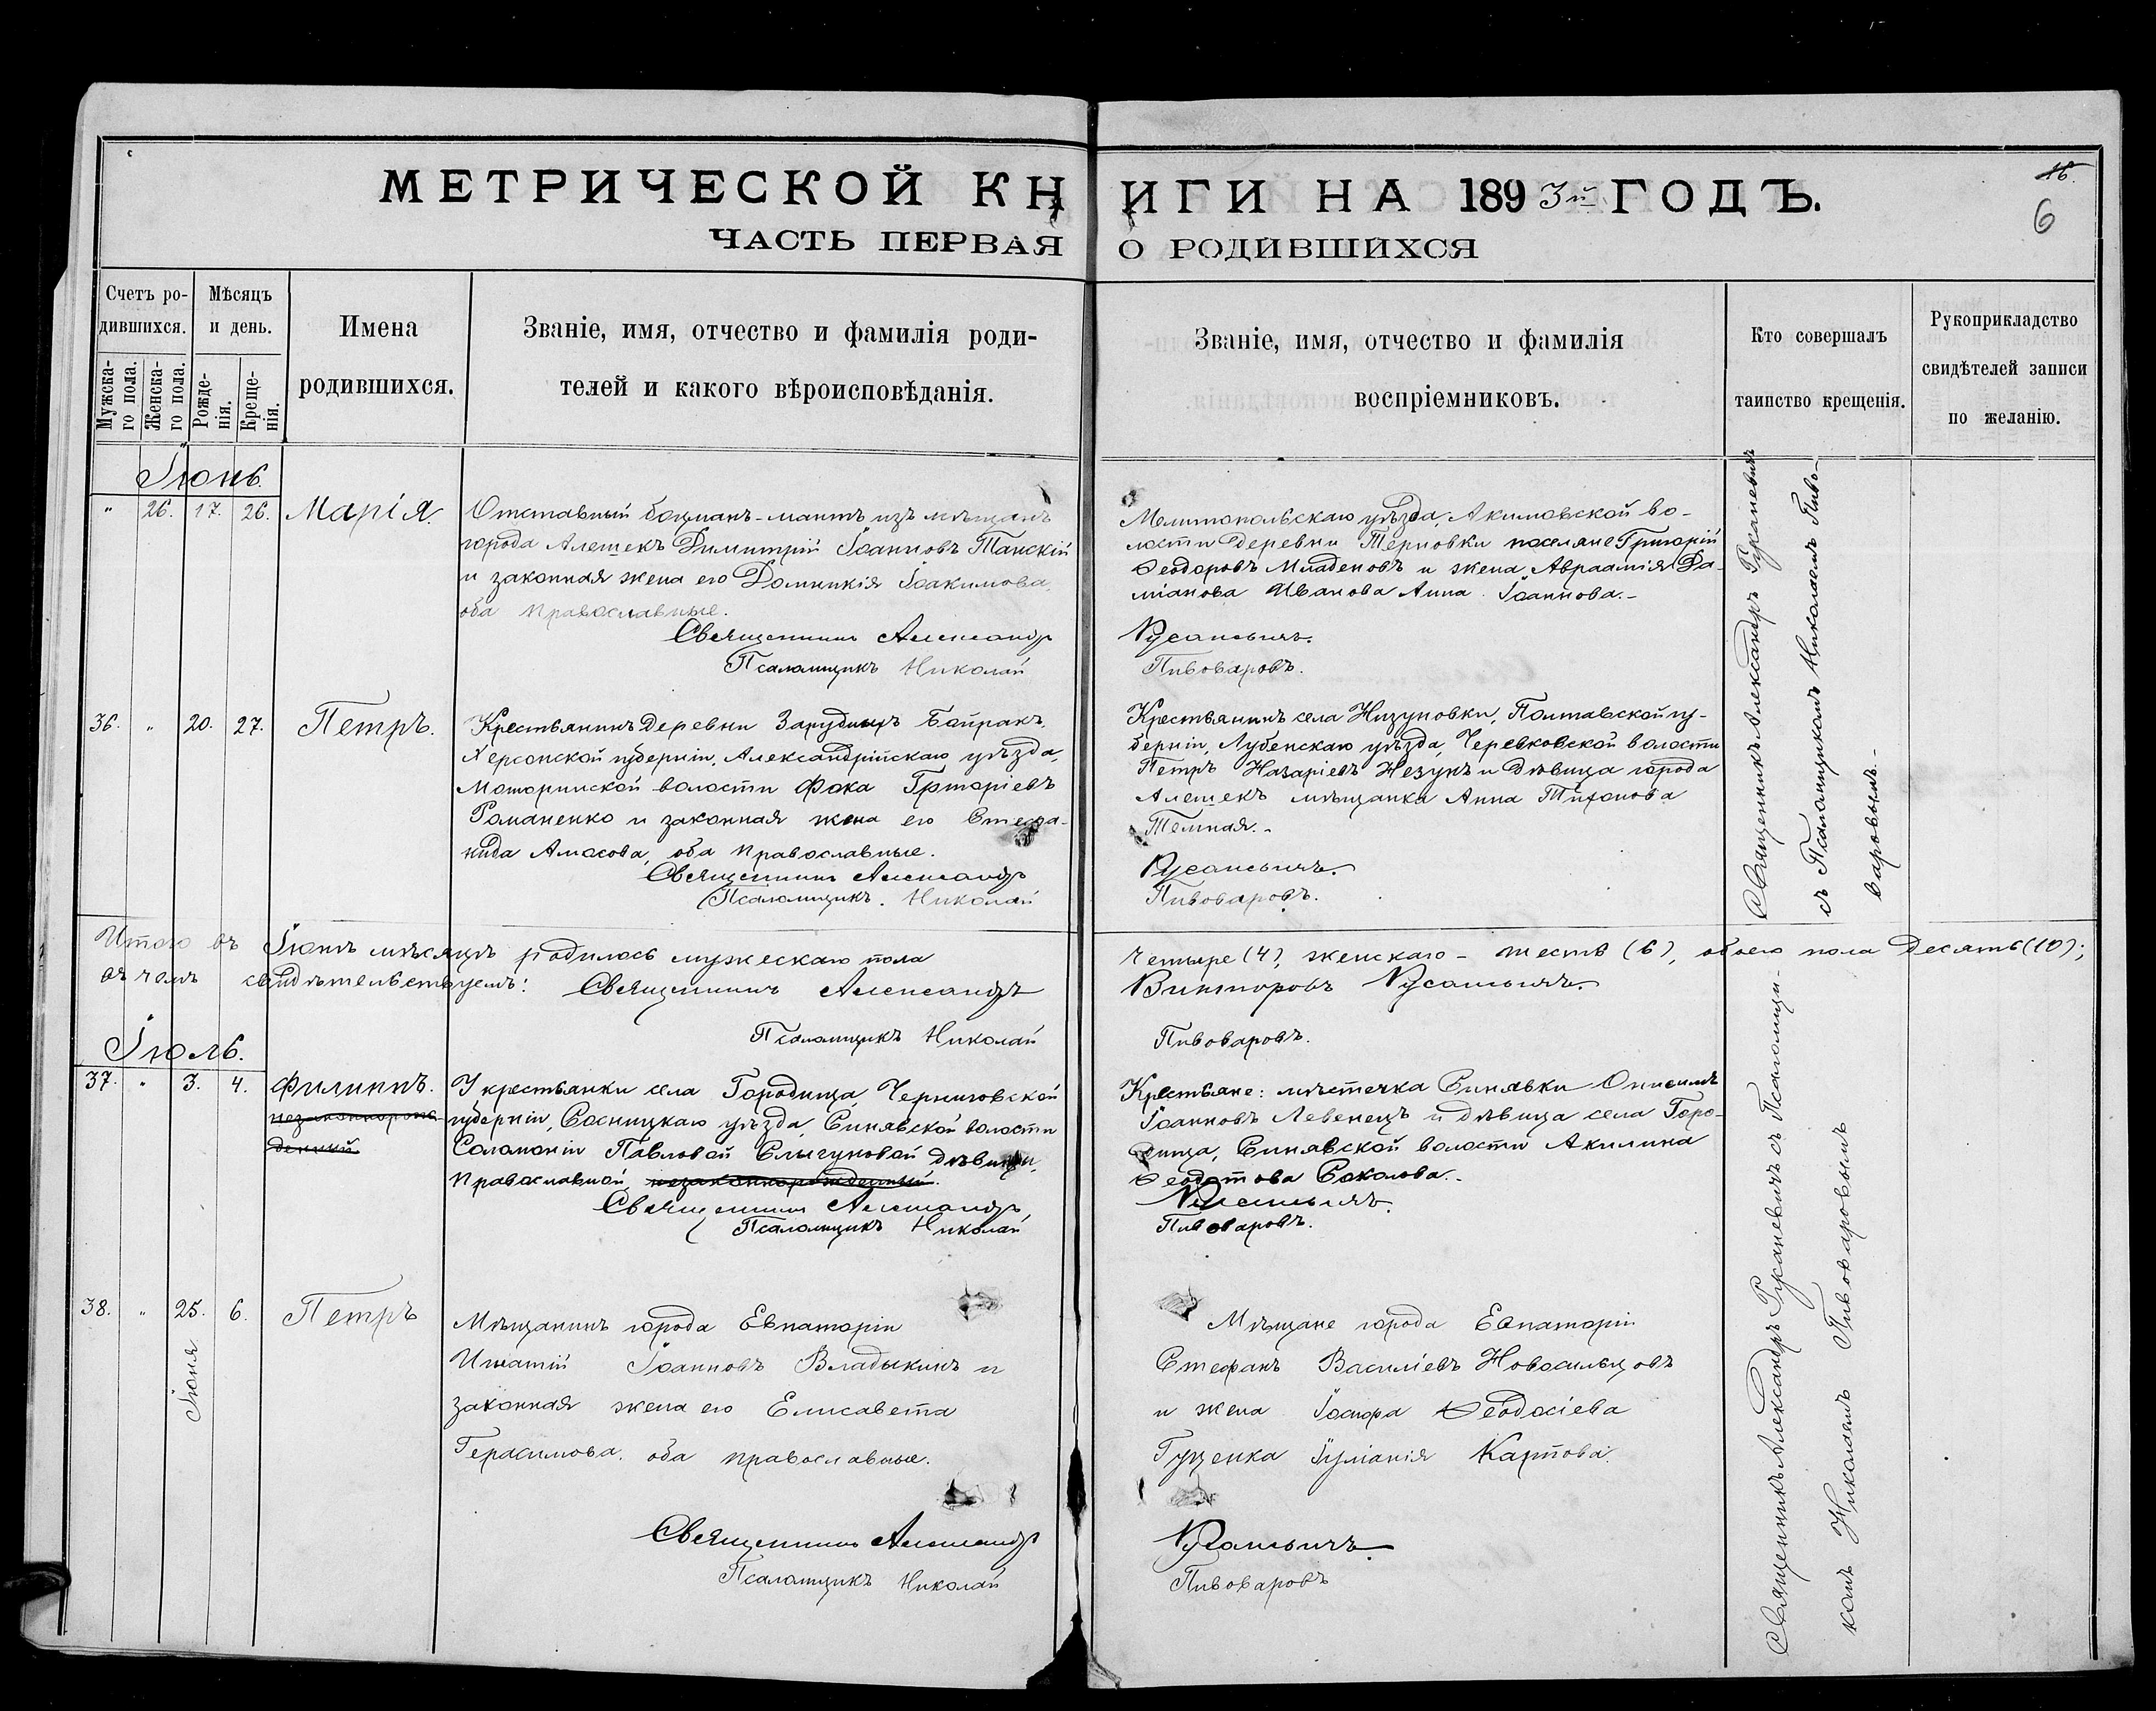 МЕТРИЧЕСКОЙ КНИГИ НА 1893й ГОДЪ.
16.
6
ЧАСТЬ ПЕРВАЯ О РОДИВШИХСЯ
Счетъ ро-
дившихся.
Мужска-
го пола.
Женска-
го пола.
Мѣсяцъ
и день.
Рожде-
нія.
Креще-
нія.
Имена
родившихся.
Званіе, имя, отчество и фамилія роди-
телей и какого вѣроисповѣданія.
Званіе, имя, отчество и фамилія
воспріемниковъ.
Кто совершалъ
таинство крещенія.
Рукоприкладство
свидѣтелей записи
по желанію.
Іюнь.
" 26. 17. 26. Марія.
Отставный боцманъ-матъ изъ мѣщанъ
города Алешекъ Димитрій Іоанновъ Танскій
и законная жена его Домникія Іоакимова,
оба православные.
Священникъ Александръ
Псаломщикъ Николай
Мелитопольскаго уѣзда, Акимовской во-
лости деревни Терновки поселяне Григорій
Ѳеодоровъ Младеновъ и жена Авраамія Да-
міанова Иванова Анна Іоаннова.-
Русаневичъ.
Пивоваровъ.
Священникъ Александръ Русаневичъ
съ Псаломщикомъ Николаемъ Пиво-
варовымъ.-
36. " 20. 27. Петръ.
Крестьянинъ деревни Зарудныхъ Байракъ,
Херсонской губерніи, Александрійскаго уѣзда,
Моторинской волости Фока Григоріевъ
Романенко и законная жена его Стефа-
нида Амосова, оба православные.
Священникъ Александръ
Псаломщикъ. Николай
Крестьянинъ села Низуновки, Полтавской гу-
берніи, Лубенскаго уѣзда, Черевковской волости
Петръ Назаріевъ Незунъ и дѣвица города
Алешекъ мѣщанка Анна Тихонова
Темная.-
Русаневичъ.
Пивоваровъ.
Итого въ Іюнѣ мѣсяцѣ родилось мужескаго пола четыре (4), женскаго - шесть (6), обоего пола десять (10);
въ чемъ свидѣтельствуемъ: Священникъ Александръ Викторовъ Русаневичъ.
Псаломщикъ Николай Пивоваровъ.
Іюль.
37. " 3. 4. Филиппъ.
незаконнорож-
денный.
У крестьянки села Городища, Черниговской
губерніи, Сосницкаго уѣзда, Синявской волости
Соломоніи Павловой Слыгуновой дѣвицы,
православной, незаконнорожденный.
Священникъ Александръ
Псаломщикъ Николай
Крестьяне: мѣстечка Синявки Онисимъ
Іоанновъ Левенецъ и дѣвица села Горо-
дища, Синявской волости Акилина
Ѳеодотова Соколова.-
Русаневичъ.
Пивоваровъ.
38. " 25. 6. Петръ
Іюня
Мѣщанинъ города Евпаторіи
Игнатій Іоанновъ Владыкинъ и
законная жена его Елисавета
Герасимова, оба православные.
Священникъ Александръ
Псаломщикъ Николай
Мѣщане города Евпаторіи
Стефанъ Василіевъ Новосильцовъ
и жена Ѳеодосіева
Гуценка Іуліанія Карпова.
Русаневичъ.
Пивоваровъ
Священникъ Александръ Русаневичъ съ Псаломщи-
комъ Николаемъ Пивоваровымъ